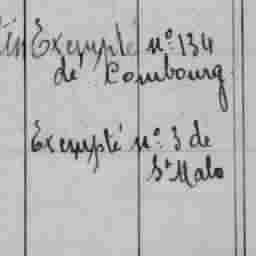 Exempté nº 134
de Combourg
Exempté nº 3 de
St Malo